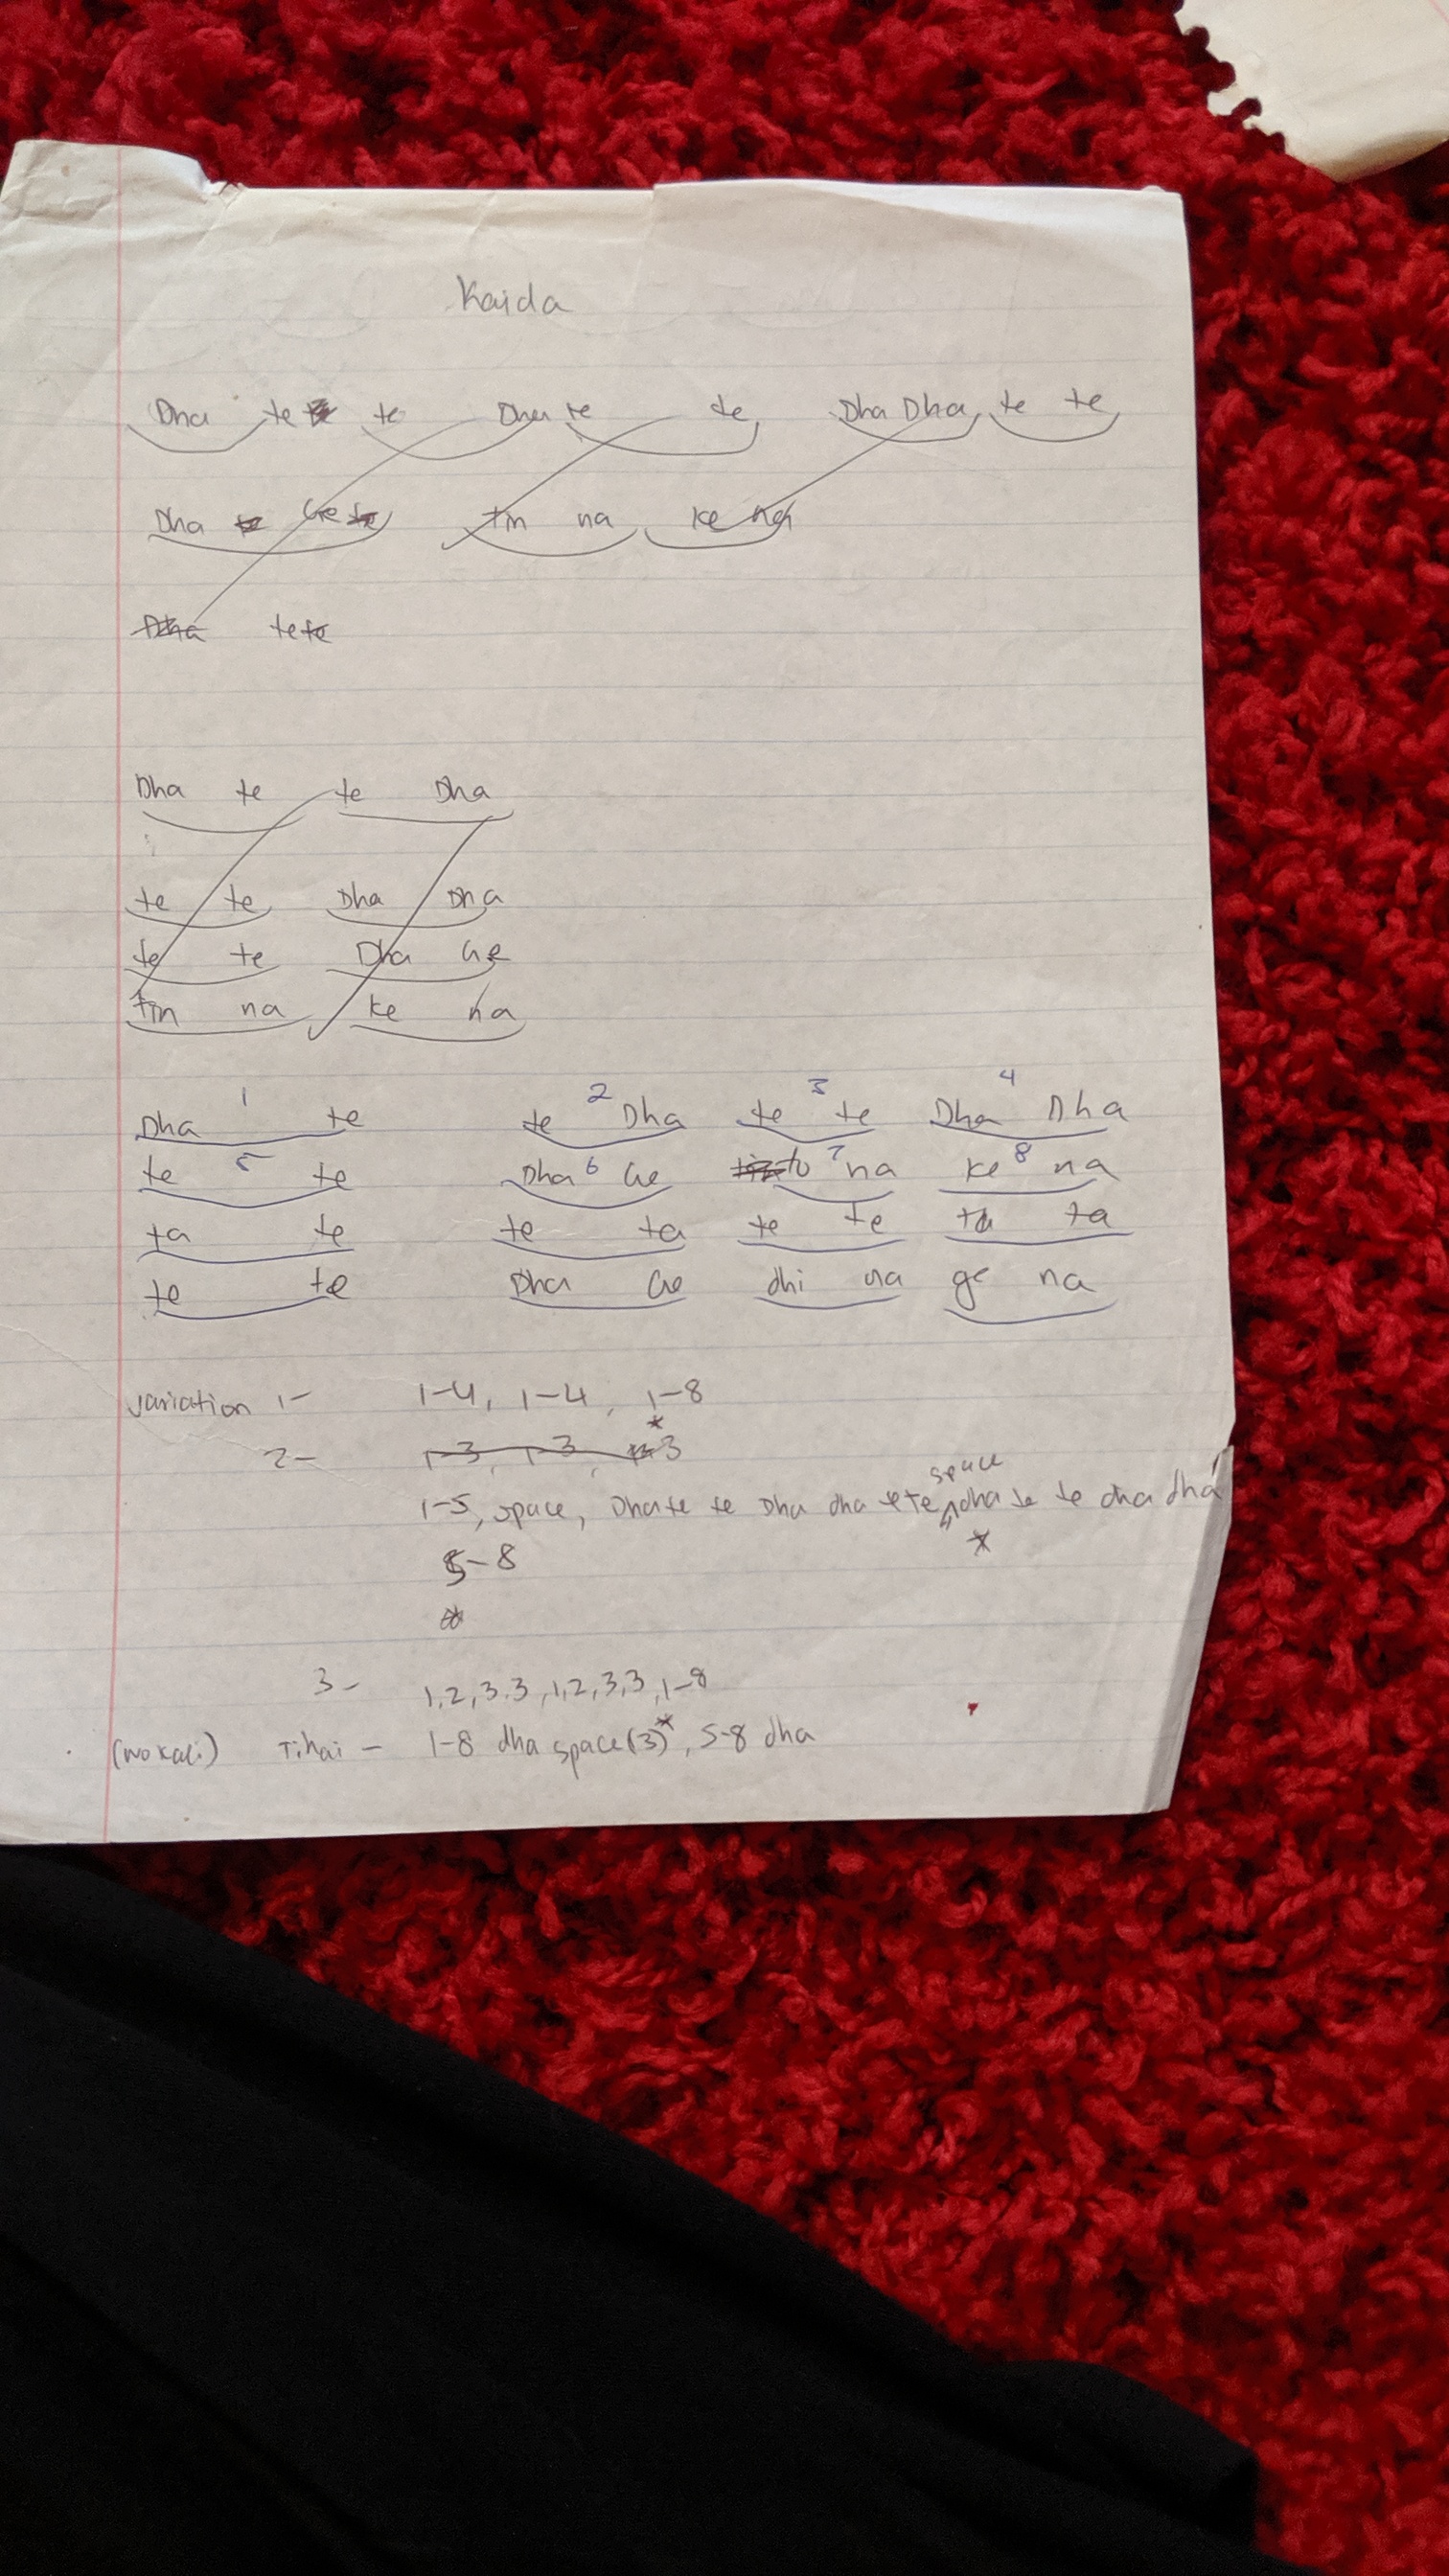 Kaida
Dha te te Dha te te Dha Dha te te
Dha Ge tin na ke na
Dha tete
Dha te te Dha
te te Dha Dha
te te Dha Ge
tin na ke na
1 2 3 4
Dha te te Dha te te Dha Dha
5 6 7 8
te te Dha Ge na ke na
ta te te ta te te ta ta
te te Dha Ge dhi na ge na
variation 1- 1-4, 1-4, 1-8
*
2- 1-3, 1-3, 3
space
1-5, space, Dhate te Dha dha tete dha te te dha dha
*
5-8
*
3- 1,2,3,3,1,2,3,3,1-8
(no kali) Tihai - 1-8 dha space(3)*, 5-8 dha